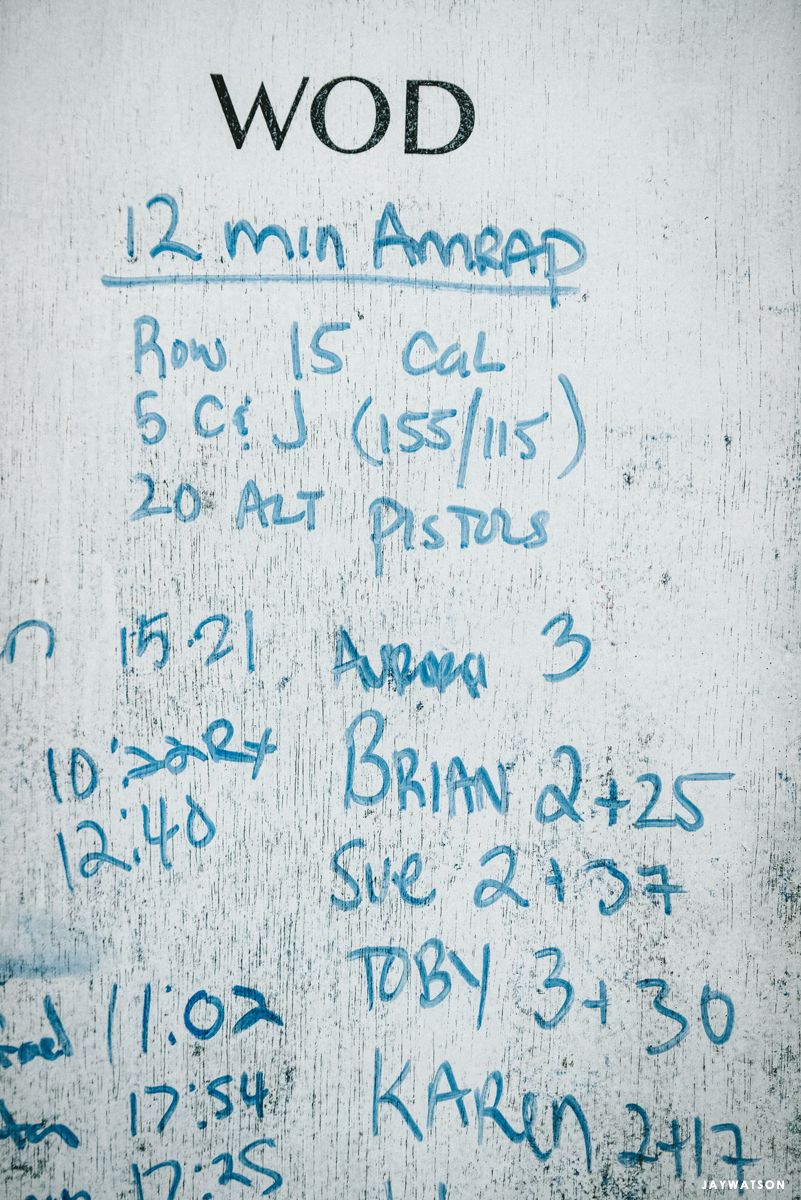 WOD
12 min AMRAP
Row 15 Cal
5 C&J (155/115)
20 ALT PISTOLS
15:21 Aurora 3
10:22 Rx BRIAN 2+25
12:40 Sue 2+37
TOBY 3+30
11:02
17:54 KAREN 2+17
17:25
JAYWATSON